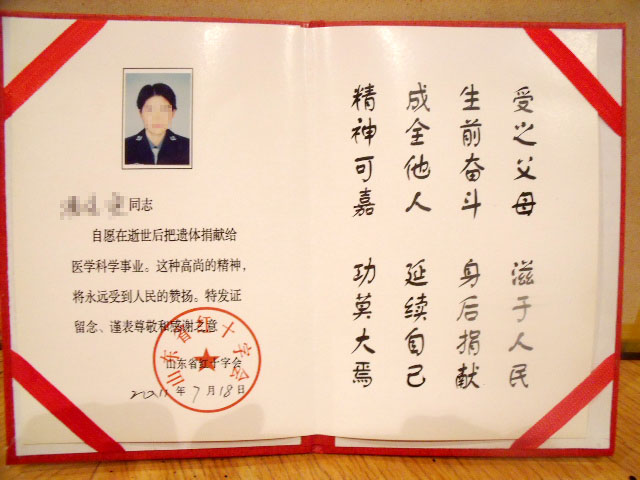 同志
自愿在逝世后把遗体捐献给
医学科学事业。这种高尚的精神,
将永远受到人民的赞扬。特发证
留念、谨表尊敬和感谢之意
山东省红十字会
年7月18日
山东省红十字会
受之父母 滋于人民
生前奋斗 身后捐献
成全他人 延续自己
精神可嘉 功莫大焉